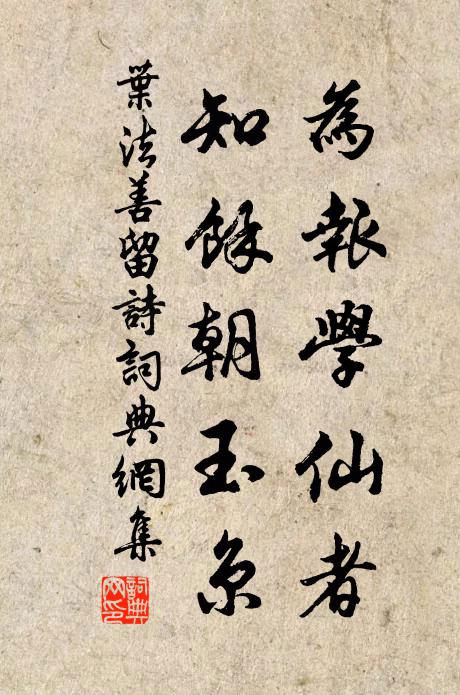 為報學仙者
知餘朝玉京
葉法善留詩詞典網集
詞典
网印